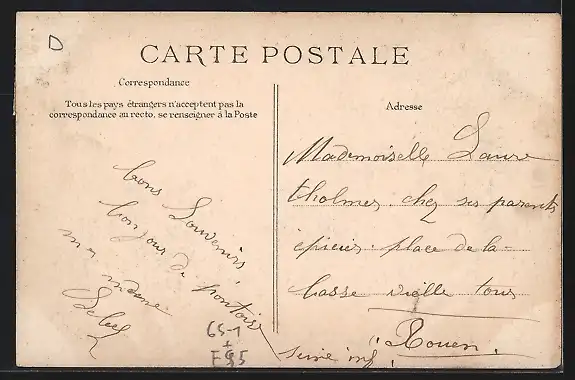 D
CARTE POSTALE
Correspondance
Tous les pays étrangers n'acceptent pas la
correspondance au recto, se renseigner à la Poste
bons Souvenirs
bonjour de pontoise
Adresse
Mademoiselle Laure
tholmer chez ses parents
épicier place de la
basse vieille tour
Rouen
Seine inf